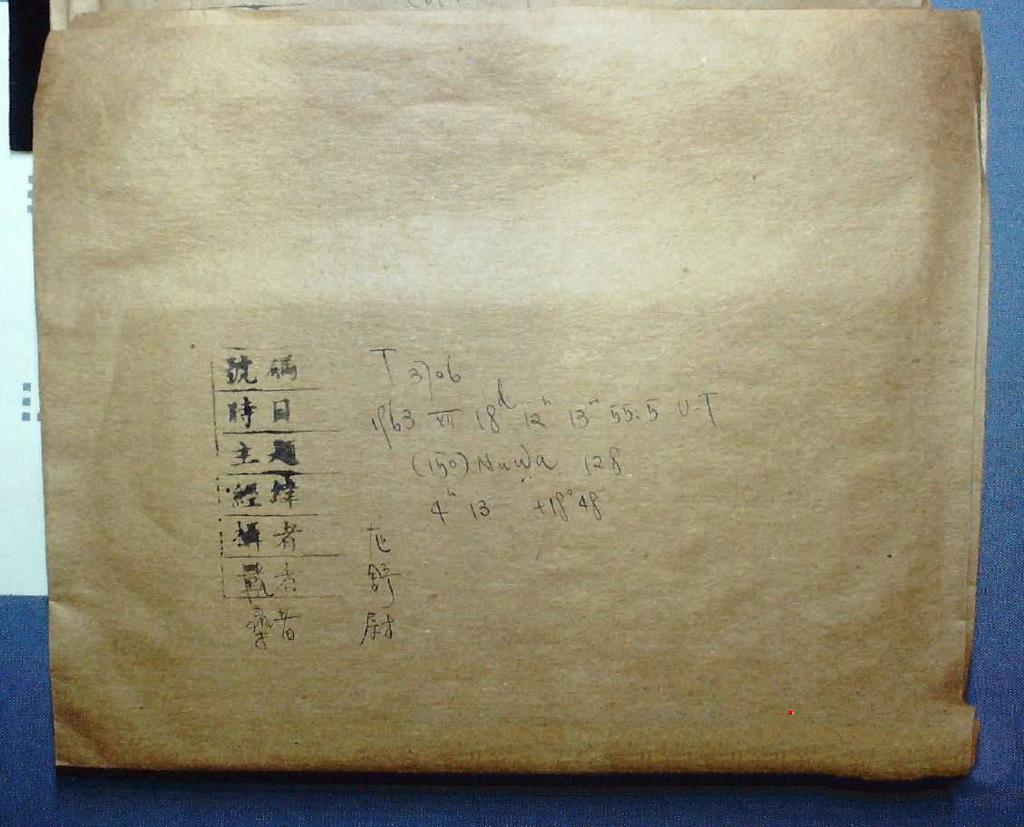 號碼 T 3706
時日 1963 XII 18ᵈ 12ʰ 13ᵐ 55.5 U.T
主題 (150) Nuwa 128
經緯 4ʰ 13 +18°48
攝者
者 舒
者 尉